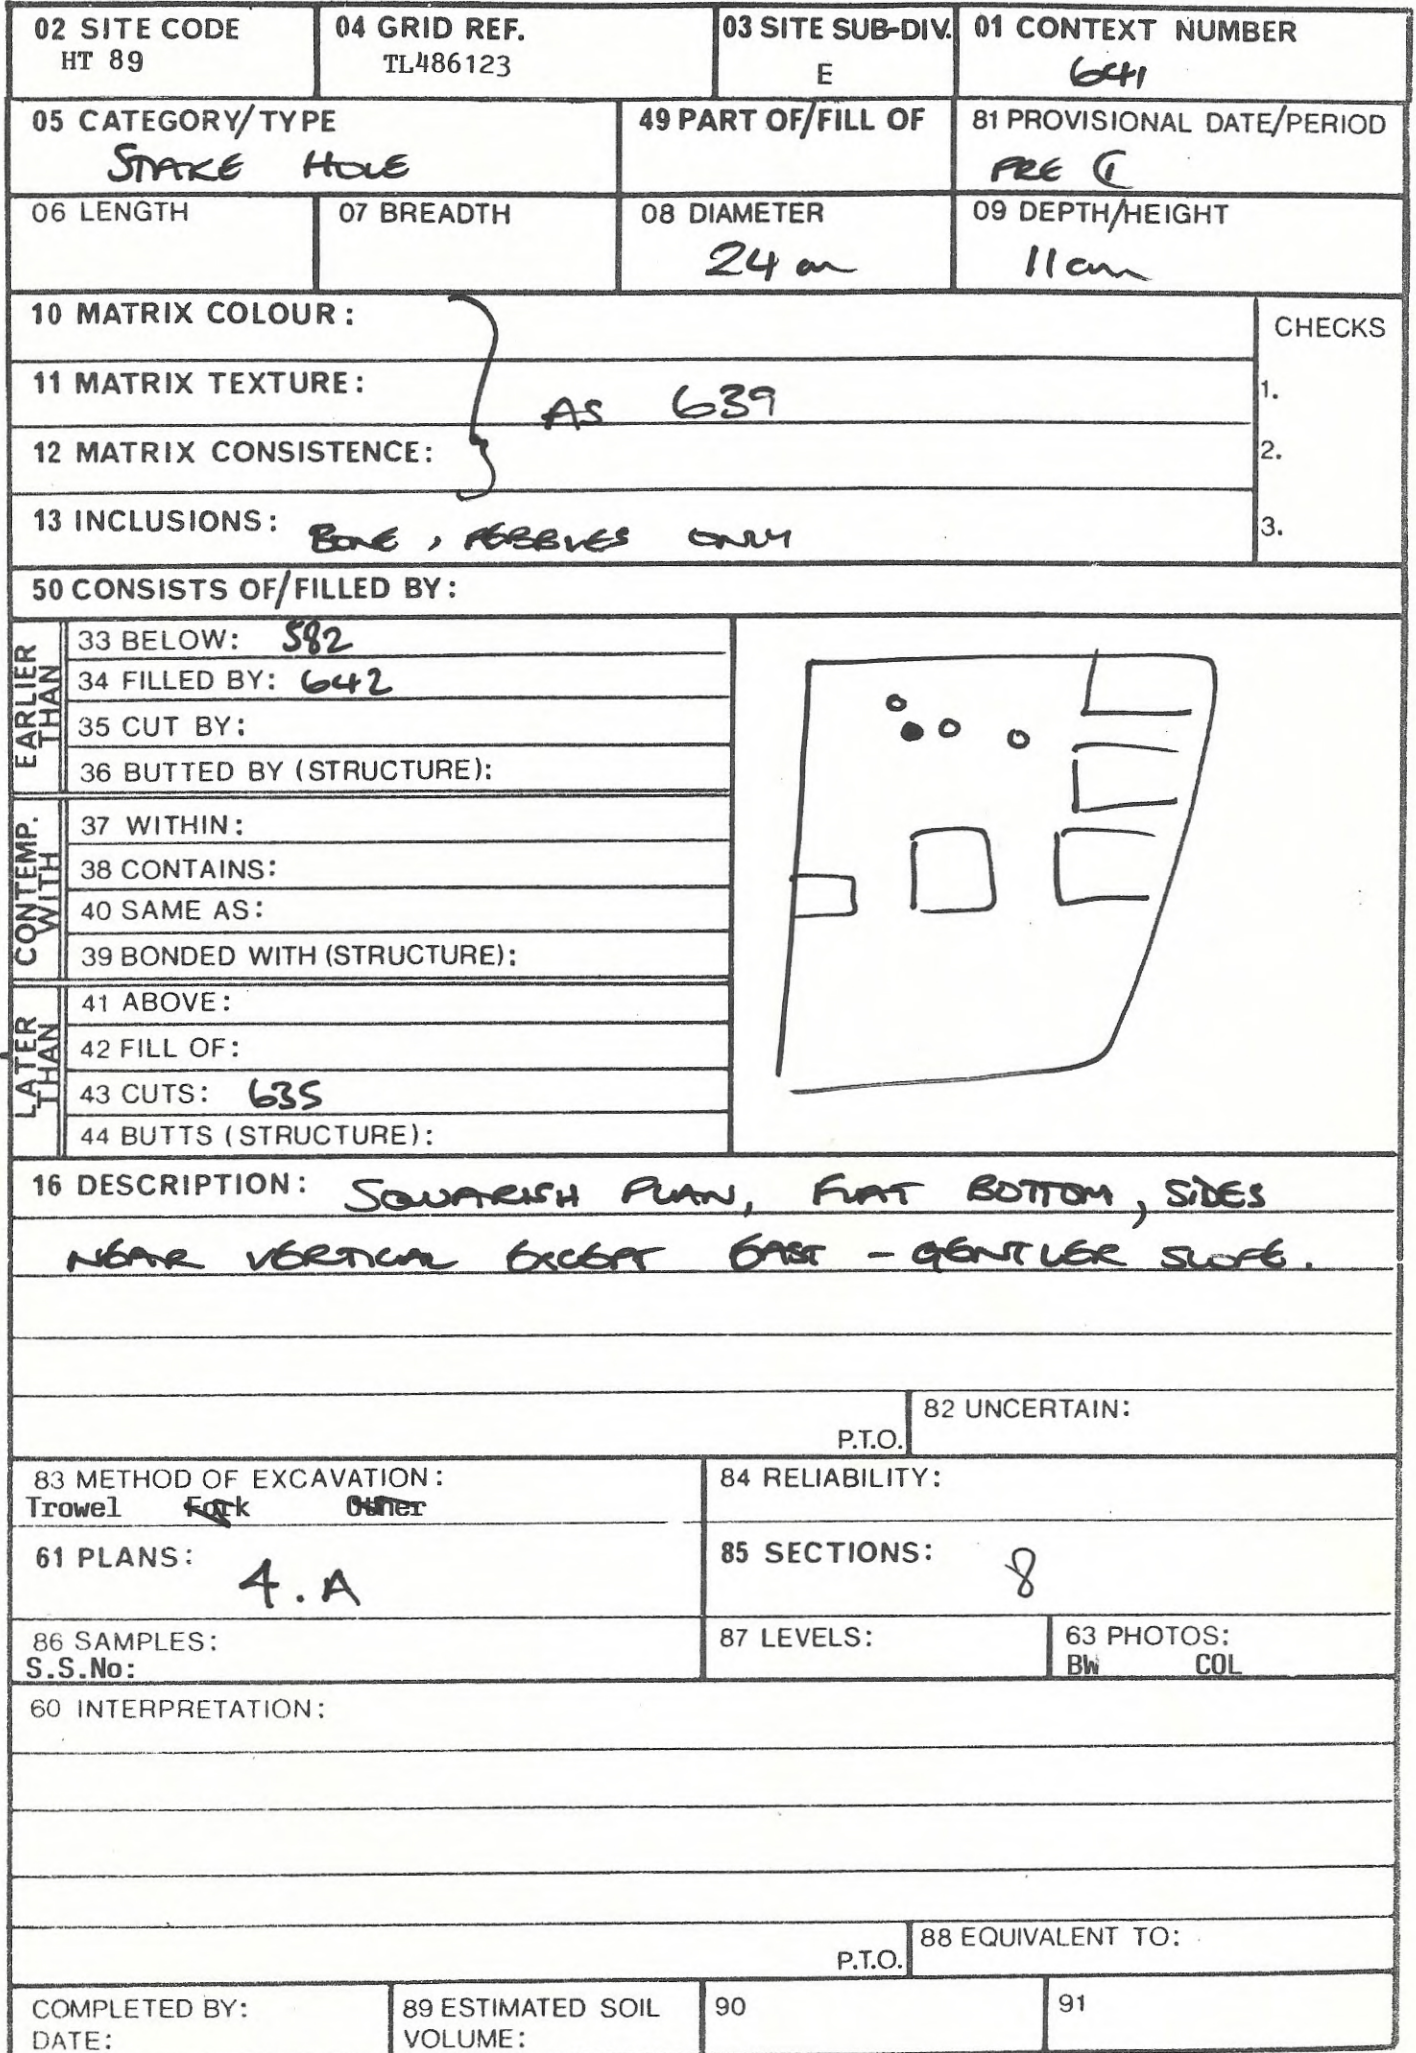 02 SITE CODE 04 GRID REF. 03 SITE SUB-DIV. 01 CONTEXT NUMBER
HT 89 TL486123 E 641
05 CATEGORY/TYPE 49 PART OF/FILL OF 81 PROVISIONAL DATE/PERIOD
STAKE HOLE PRE
06 LENGTH 07 BREADTH 08 DIAMETER 09 DEPTH/HEIGHT
24 cm 11 cm
10 MATRIX COLOUR: CHECKS
11 MATRIX TEXTURE: 1.
AS 639
12 MATRIX CONSISTENCE: 2.
13 INCLUSIONS: BONE, PEBBLES ONLY 3.
50 CONSISTS OF/FILLED BY:
EARLIER THAN
33 BELOW: 582
34 FILLED BY: 642
35 CUT BY:
36 BUTTED BY (STRUCTURE):
CONTEMP. WITH
37 WITHIN:
38 CONTAINS:
40 SAME AS:
39 BONDED WITH (STRUCTURE):
LATER THAN
41 ABOVE:
42 FILL OF:
43 CUTS: 635
44 BUTTS (STRUCTURE):
16 DESCRIPTION: SQUARISH PLAN, FLAT BOTTOM, SIDES
NEAR VERTICAL EXCEPT EAST - GENTLER SLOPE.
P.T.O. 82 UNCERTAIN:
83 METHOD OF EXCAVATION: 84 RELIABILITY:
Trowel Fork Other
61 PLANS: 4.A 85 SECTIONS: 8
86 SAMPLES: 87 LEVELS: 63 PHOTOS:
S.S.No: BW COL
60 INTERPRETATION:
P.T.O. 88 EQUIVALENT TO:
COMPLETED BY: 89 ESTIMATED SOIL 90 91
DATE: VOLUME: